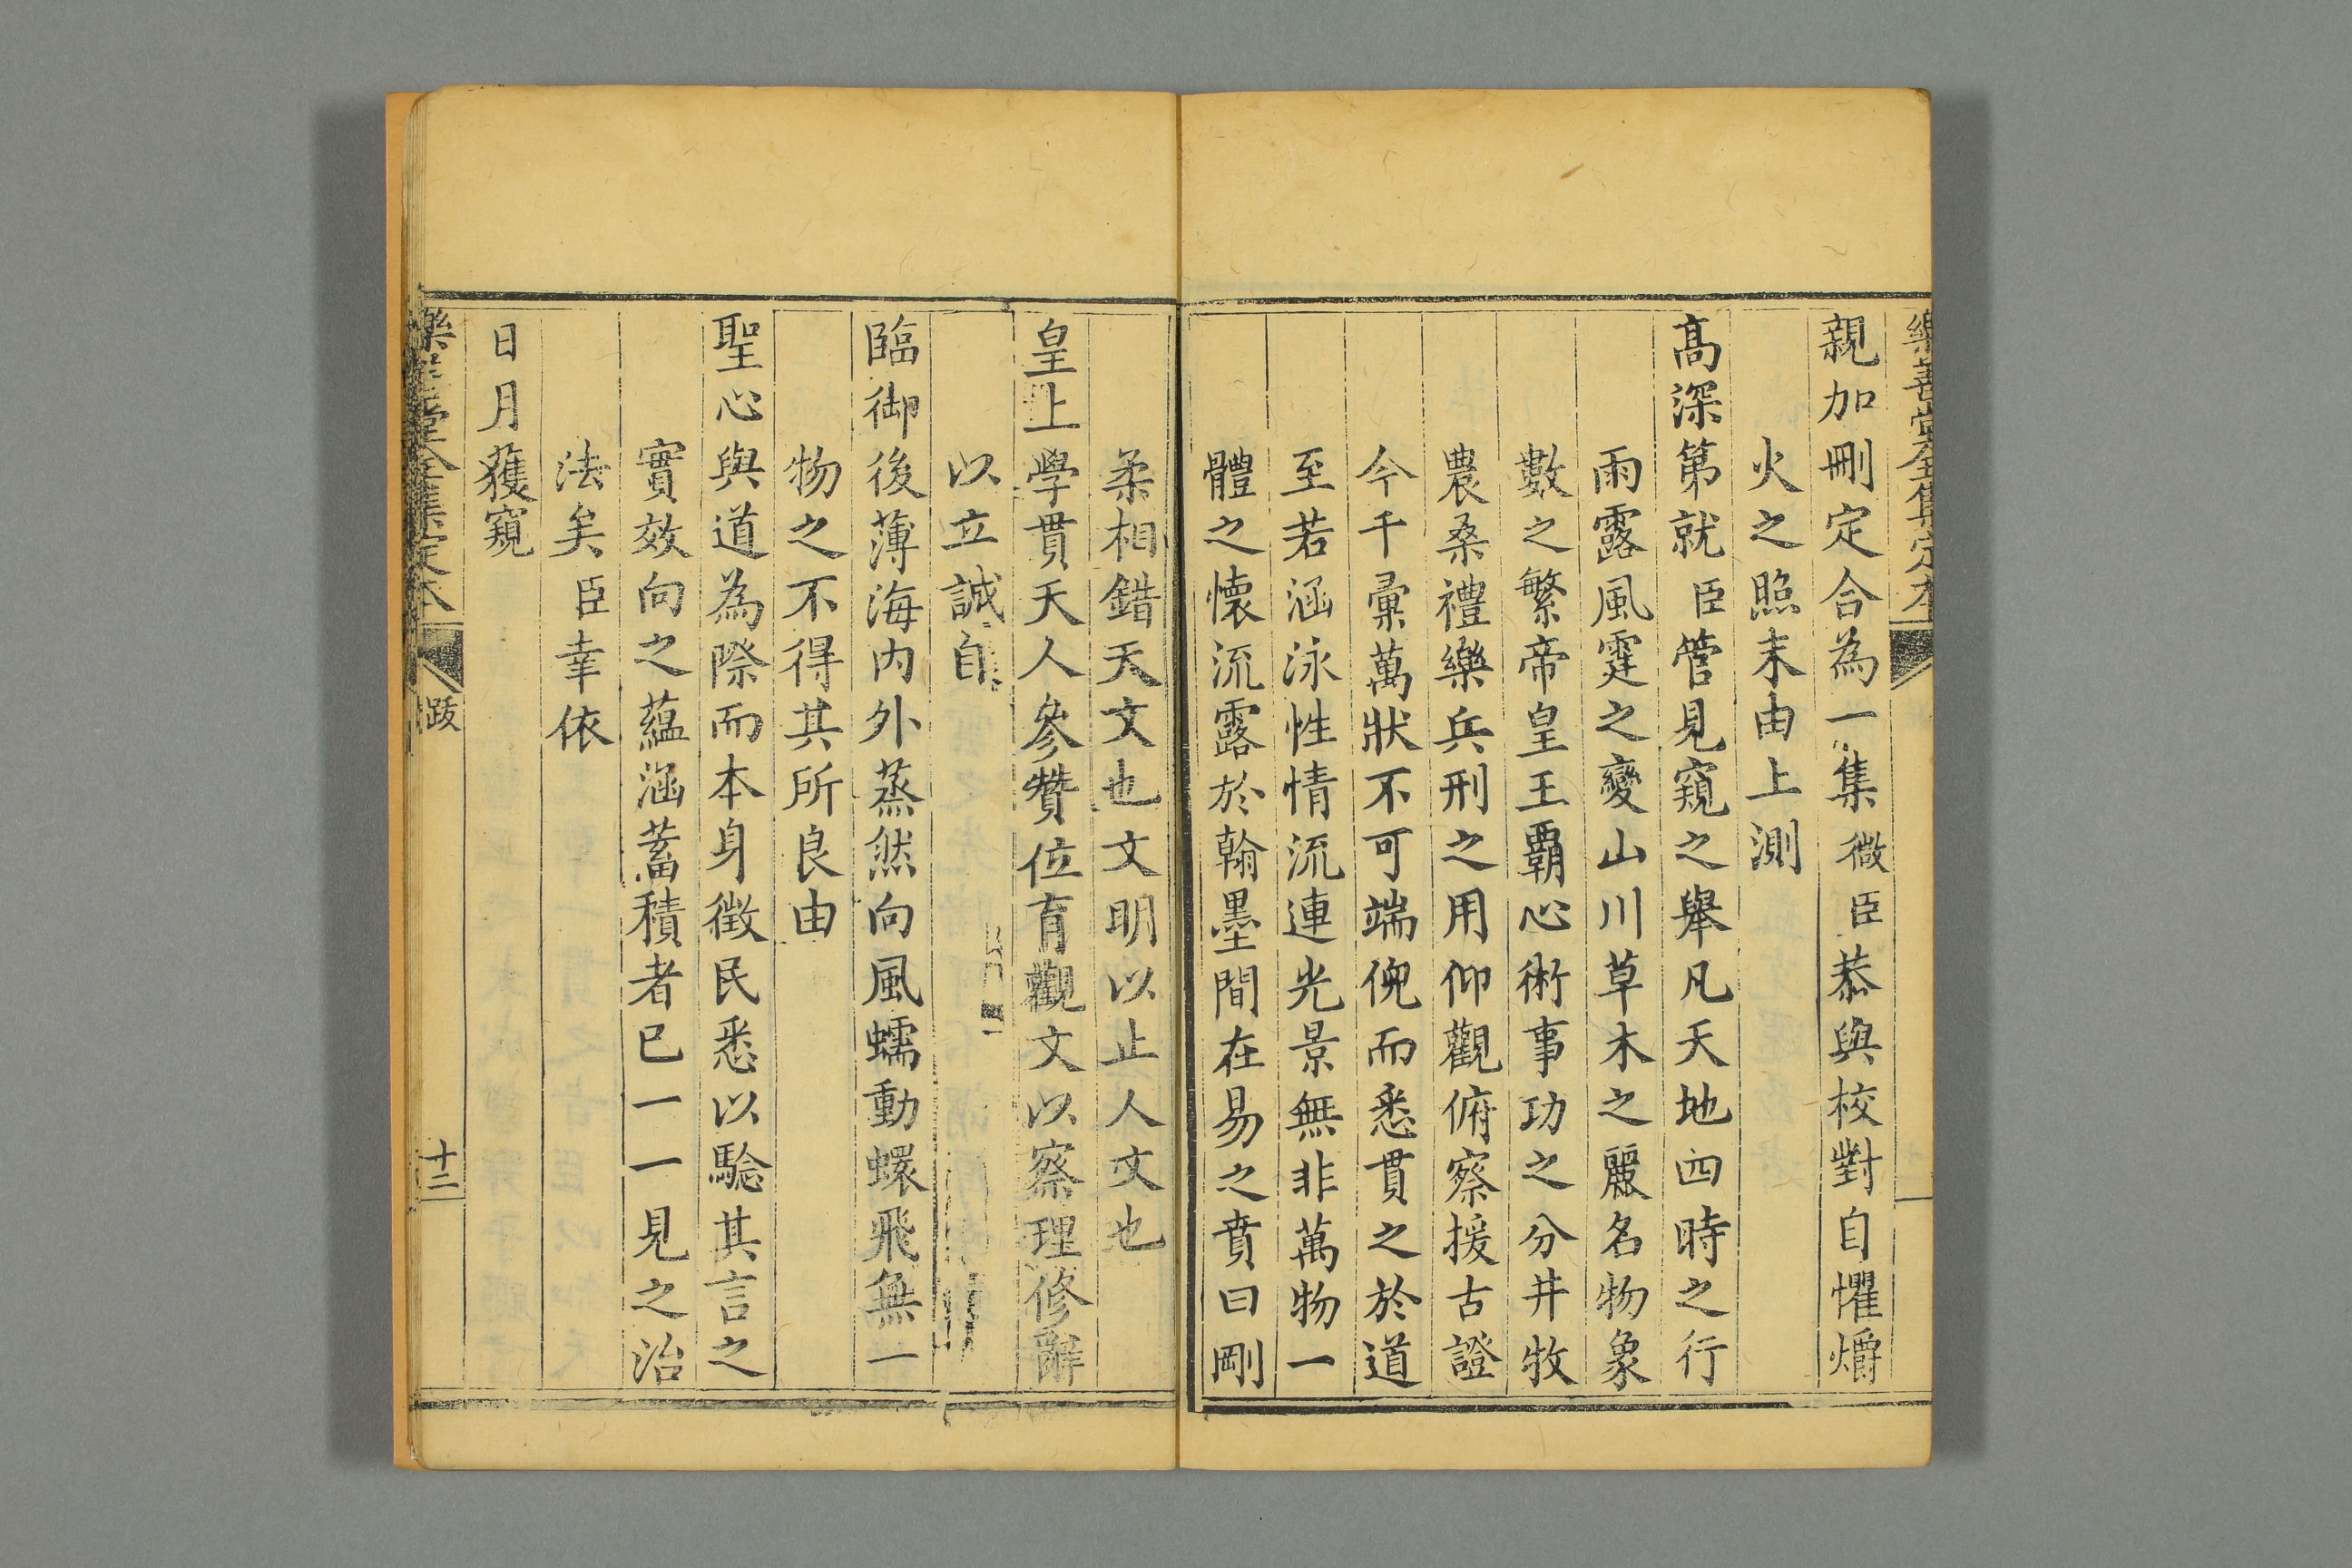 樂善堂全集定本
親加刪定合為一集微臣恭與校對自懼爝
火之照末由上測
高深第就臣管見窺之舉凡天地四時之行
雨露風霆之變山川草木之麗名物象
數之繁帝皇王覇心術事功之分井牧
農桑禮樂兵刑之用仰觀俯察援古證
今千彙萬狀不可端倪而悉貫之於道
至若涵泳性情流連光景無非萬物一
體之懷流露於翰墨間在易之賁曰剛
柔相錯天文也文明以止人文也
皇上學貫天人參贊位育觀文以察理修辭
以立誠自
臨御後薄海內外蒸然向風蠕動蠉飛無一
物之不得其所良由
聖心與道為際而本身徵民悉以驗其言之
實效向之蘊涵蓄積者已一一見之治
法矣臣幸依
日月獲窺
樂善堂全集定本
跋
十二